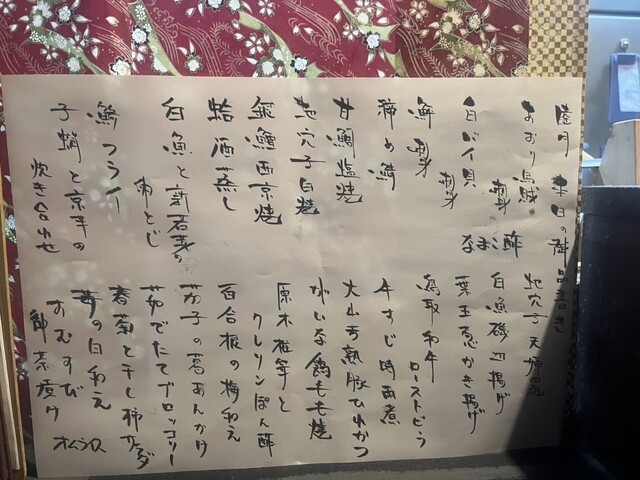 睦月 本日の御品書き
あおり烏賊 刺身
白バイ貝 刺身
なまこ酢
鰤 刺身
〆め鯖
甘鯛塩焼
地穴子白焼
銀鱈西京焼
蛤酒蒸し
白魚と新若芽の卵とじ
鯵フライ
子蛸と京芋の炊き合わせ
地穴子天婦羅
白魚磯辺揚げ
葉玉葱かき揚げ
鳥取和牛ローストビーフ
牛すじ時雨煮
大山豚ひれかつ
がいな鶏もも焼
原木椎茸とクレソンぽん酢
百合根の梅和え
茄子の葛あんかけ
茹でたてブロッコリー
春菊と干し柿サラダ
苺の白和え
おむすび
御茶漬け
オムライス